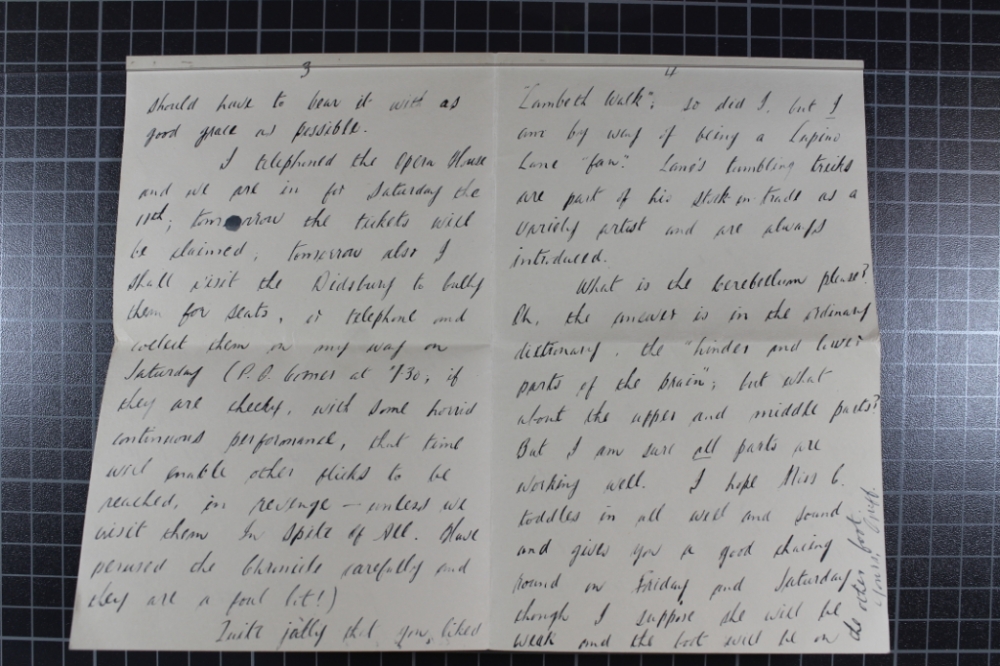 3
should have to bear it with as
good grace as possible.
I telephoned the Opera House
and we are in for Saturday the
11th; tomorrow the tickets will
be claimed; tomorrow also I
shall visit the Didsbury to bully
them for seats, or telephone and
collect them on my way on
Saturday (P.O. Corner at 1.30; if
they are cheeky, with some horrid
continuous performance, that time
will enable other flicks to be
reached, in revenge — unless we
visit them In Spite of All. Have
perused the Chronicle carefully and
they are a foul lot!)
Quite jolly that you liked
4
"Lambeth Walk"; so did I, but I
am by way of being a Lupino
Lane "fan". Lane's tumbling tricks
are part of his stock-in-trade as a
variety artist and are always
introduced.
What is the Cerebellum please?
Oh, the answer is in the ordinary
dictionary, the "hinder and lower
parts of the brain"; but what
about the upper and middle parts?
But I am sure all parts are
working well. I hope Miss C.
toddles in all well and sound
and gives you a good chasing
round on Friday and Saturday
though I suppose she will be
weak and the boot will be on
the other foot.
Yours,